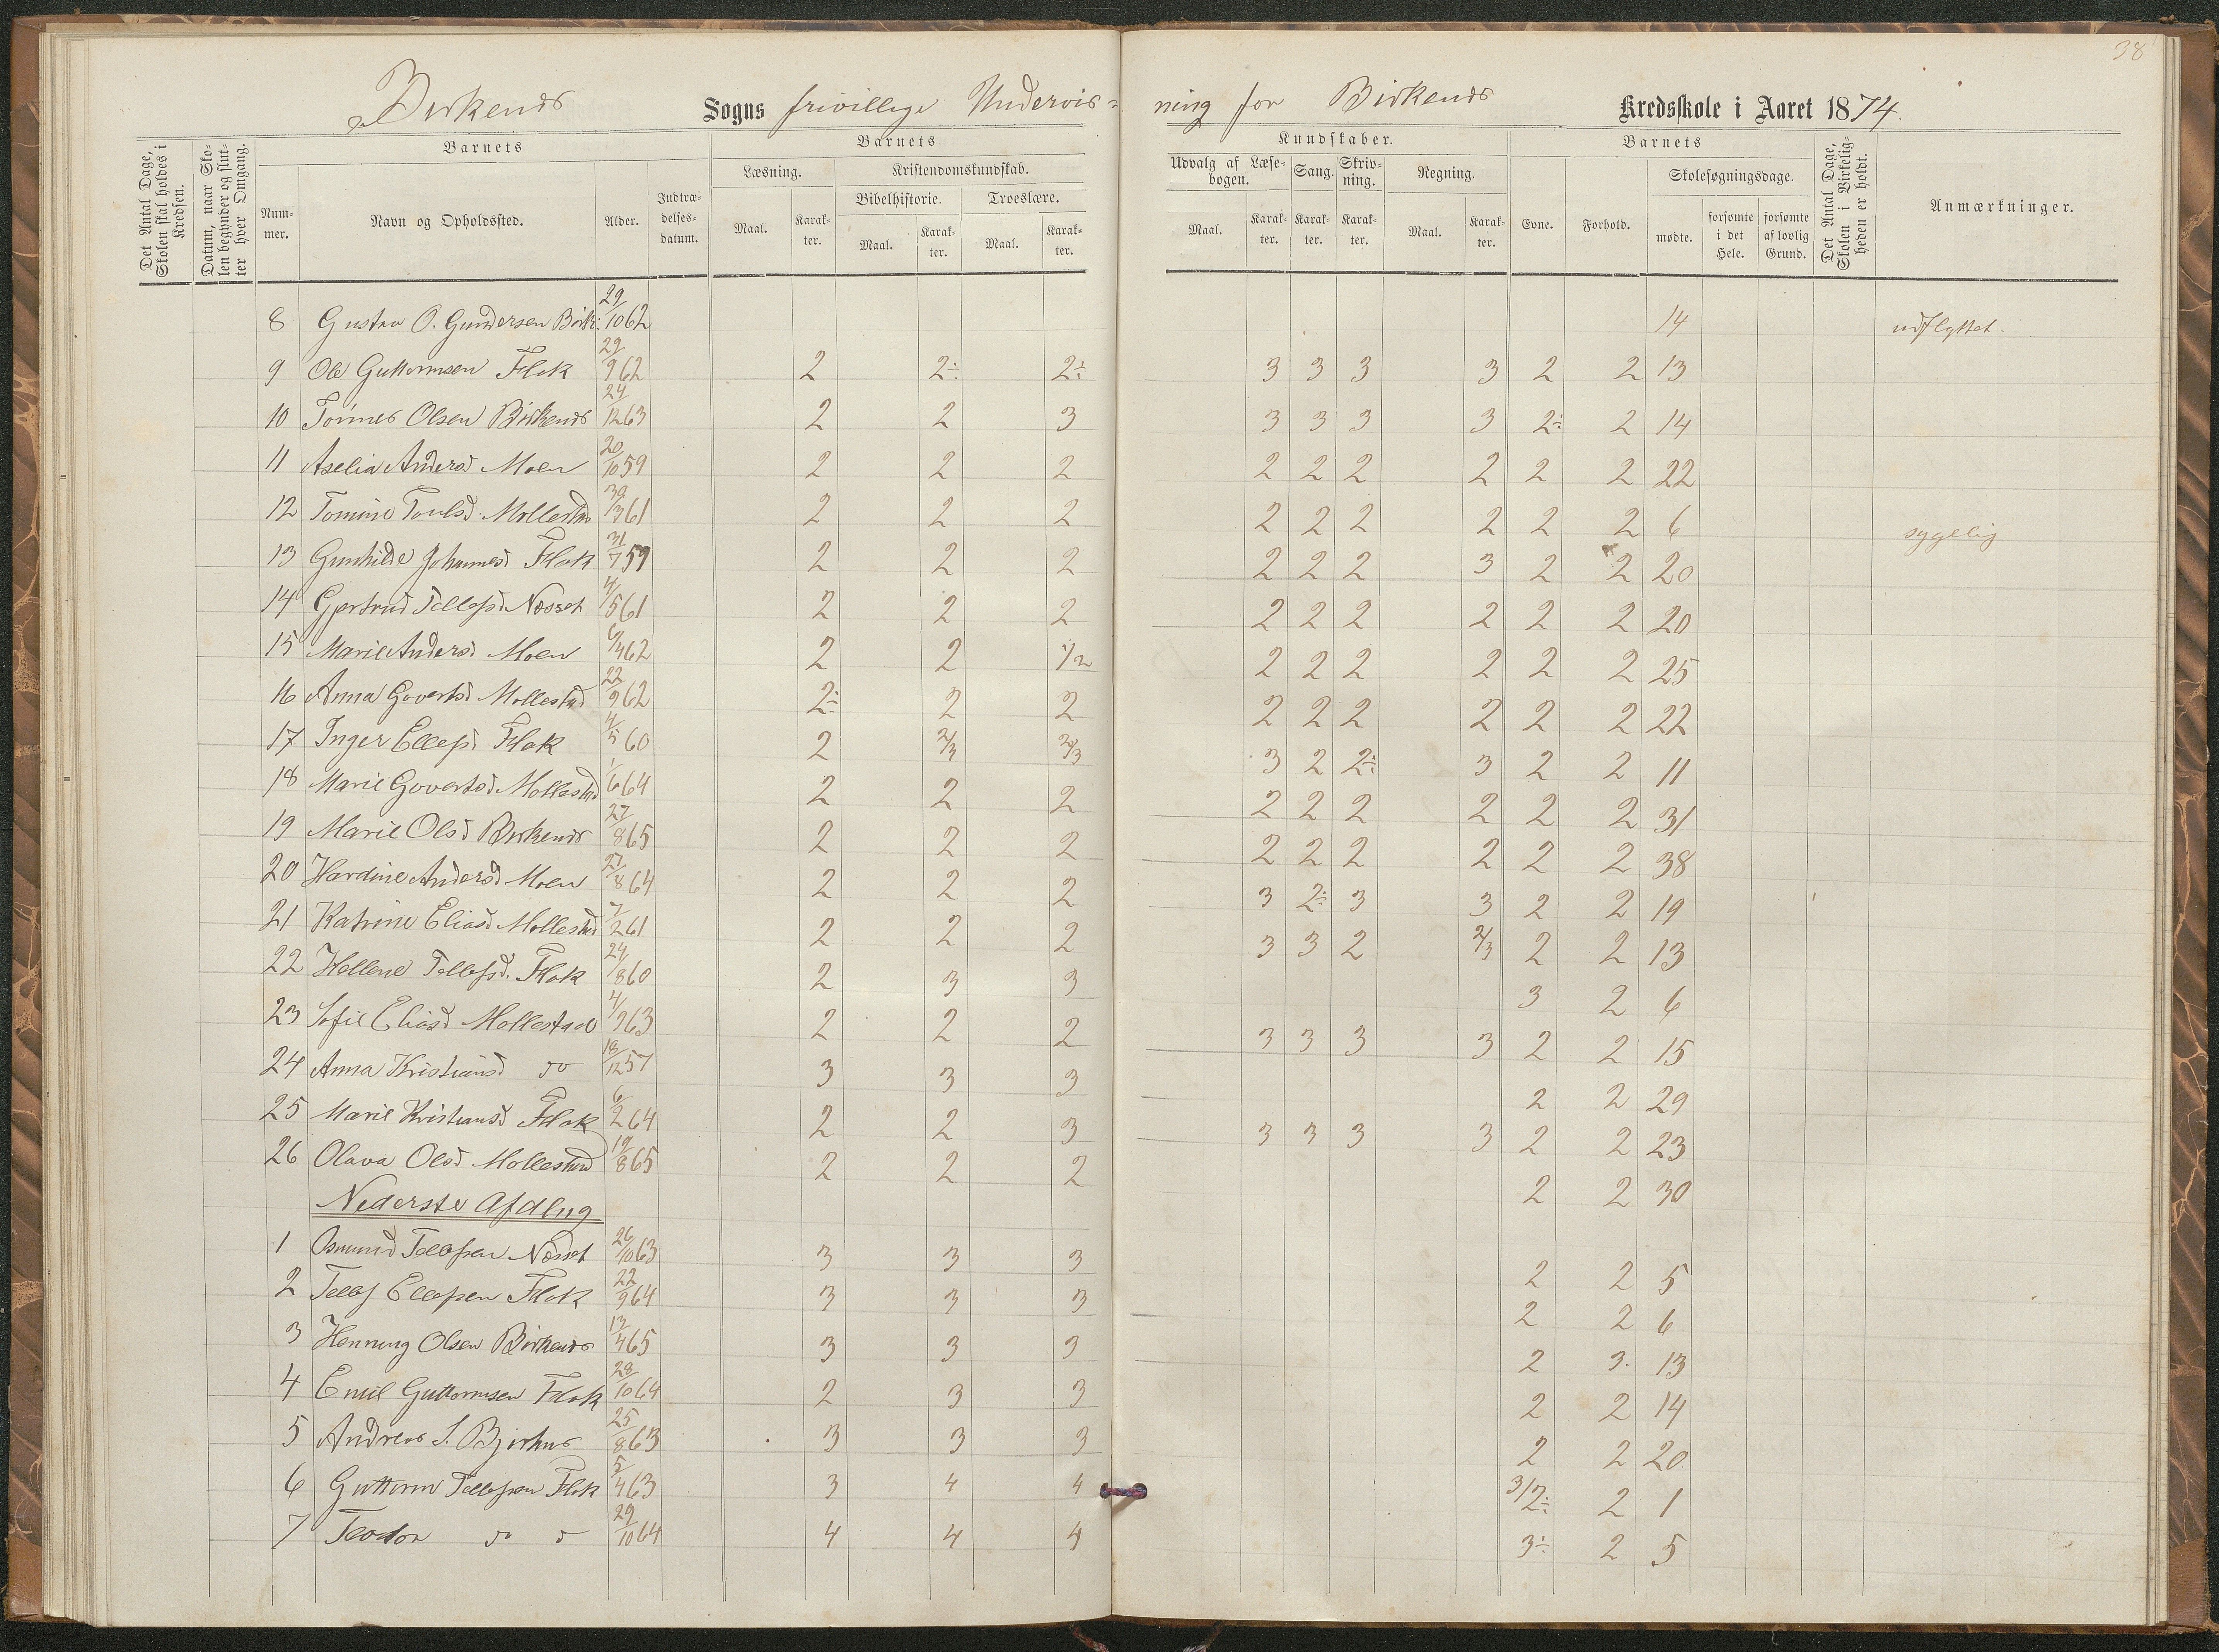 38
Birkenes Sogns frivillige Undervis- ning for Birkenes Kredsskole i Aaret 1874.
Det Antal Dage, Skolen skal holdes i Kredsen.
Datum, naar Skolen begynder og slutter hver Omgang.
Barnets
Nummer.
Navn og Opholdssted.
Alder.
Indtrædelsesdatum.
Barnets
Læsning.
Maal.
Karakter.
Kristendomskundskab.
Bibelhistorie.
Maal.
Karakter.
Troeslære.
Maal.
Karakter.
Kundskaber.
Udvalg af Læsebogen.
Maal.
Karakter.
Sang.
Karakter.
Skrivning.
Karakter.
Regning.
Maal.
Karakter.
Barnets
Evne.
Forhold.
Skolesøgningsdage.
mødte.
forsømte i det Hele.
forsømte af lovlig Grund.
Det Antal Dage, Skolen i Virkeligheden er holdt.
Anmærkninger.
8 Gustav O. Gundersen Birk: 29/10 62 14 udflyttet.
9 Ole Guttormsen Flak 29/9 62 2 2÷ 2÷ 3 3 3 3 2 2 13
10 Tønnes Olsen Birkenes 24/12 63 2 2 3 3 3 3 3 2÷ 2 14
11 Aselia Andersd Moen 20/10 59 2 2 2 2 2 2 2 2 2 22
12 Tomine Toulsd. Mollestad 30/3 61 2 2 2 2 2 2 2 2 2 6 sygelig
13 Gunhilde Johannesd Flak 31/7 59 2 2 2 2 2 2 3 2 2 20
14 Gjertrud Tellefsd Næsset 4/5 61 2 2 2 2 2 2 2 2 2 20
15 Marie Andersd Moen 6/4 62 2 2 1/2 2 2 2 2 2 2 25
16 Anna Govertsd Mollestad 22/9 62 2÷ 2 2 2 2 2 2 2 2 22
17 Inger Ellefsd Flak 4/5 60 2 2/3 2/3 3 2 2÷ 3 2 2 11
18 Marie Govertsd Mollestad 1/6 64 2 2 2 2 2 2 2 2 2 31
19 Marie Olsd Birkenes 27/8 65 2 2 2 2 2 2 2 2 2 38
20 Hardine Andersd Moen 27/8 64 2 2 2 3 2÷ 3 3 2 2 19
21 Katrine Eliasd Mollestad 7/2 61 2 2 2 3 3 2 2/3 2 2 13
22 Hellene Tellefsd. Flak 24/8 60 2 3 3 3 2 6
23 Sofie Eliasd Mollestad 4/9 63 2 2 2 3 3 3 3 2 2 15
24 Anna Kristiansd do 18/12 57 3 3 3 2 2 29
25 Marie Kristiansd Flak 6/2 64 2 2 3 3 3 3 3 2 2 23
26 Olava Olsd Mollestad 19/8 65 2 2 2 2 2 30
Nederste Afdlng
1 Osmund Tellefsen Næsset 26/10 63 3 3 3 2 2 5
2 Tellef Ellefsen Flak 22/9 64 3 3 3 2 2 6
3 Henning Olsen Birkenes 13/4 65 3 3 3 2 3. 13
4 Emil Guttormsen Flak 28/10 64 2 3 3 2 2 14
5 Andreas S. Bjorhus 25/8 63 3 3 3 2 2 20
6 Guttorm Tellefsen Flak 5/4 63 3 4 4 3/2÷ 2 1
7 Teodor do d 29/10 64 4 4 4 3÷ 2 5